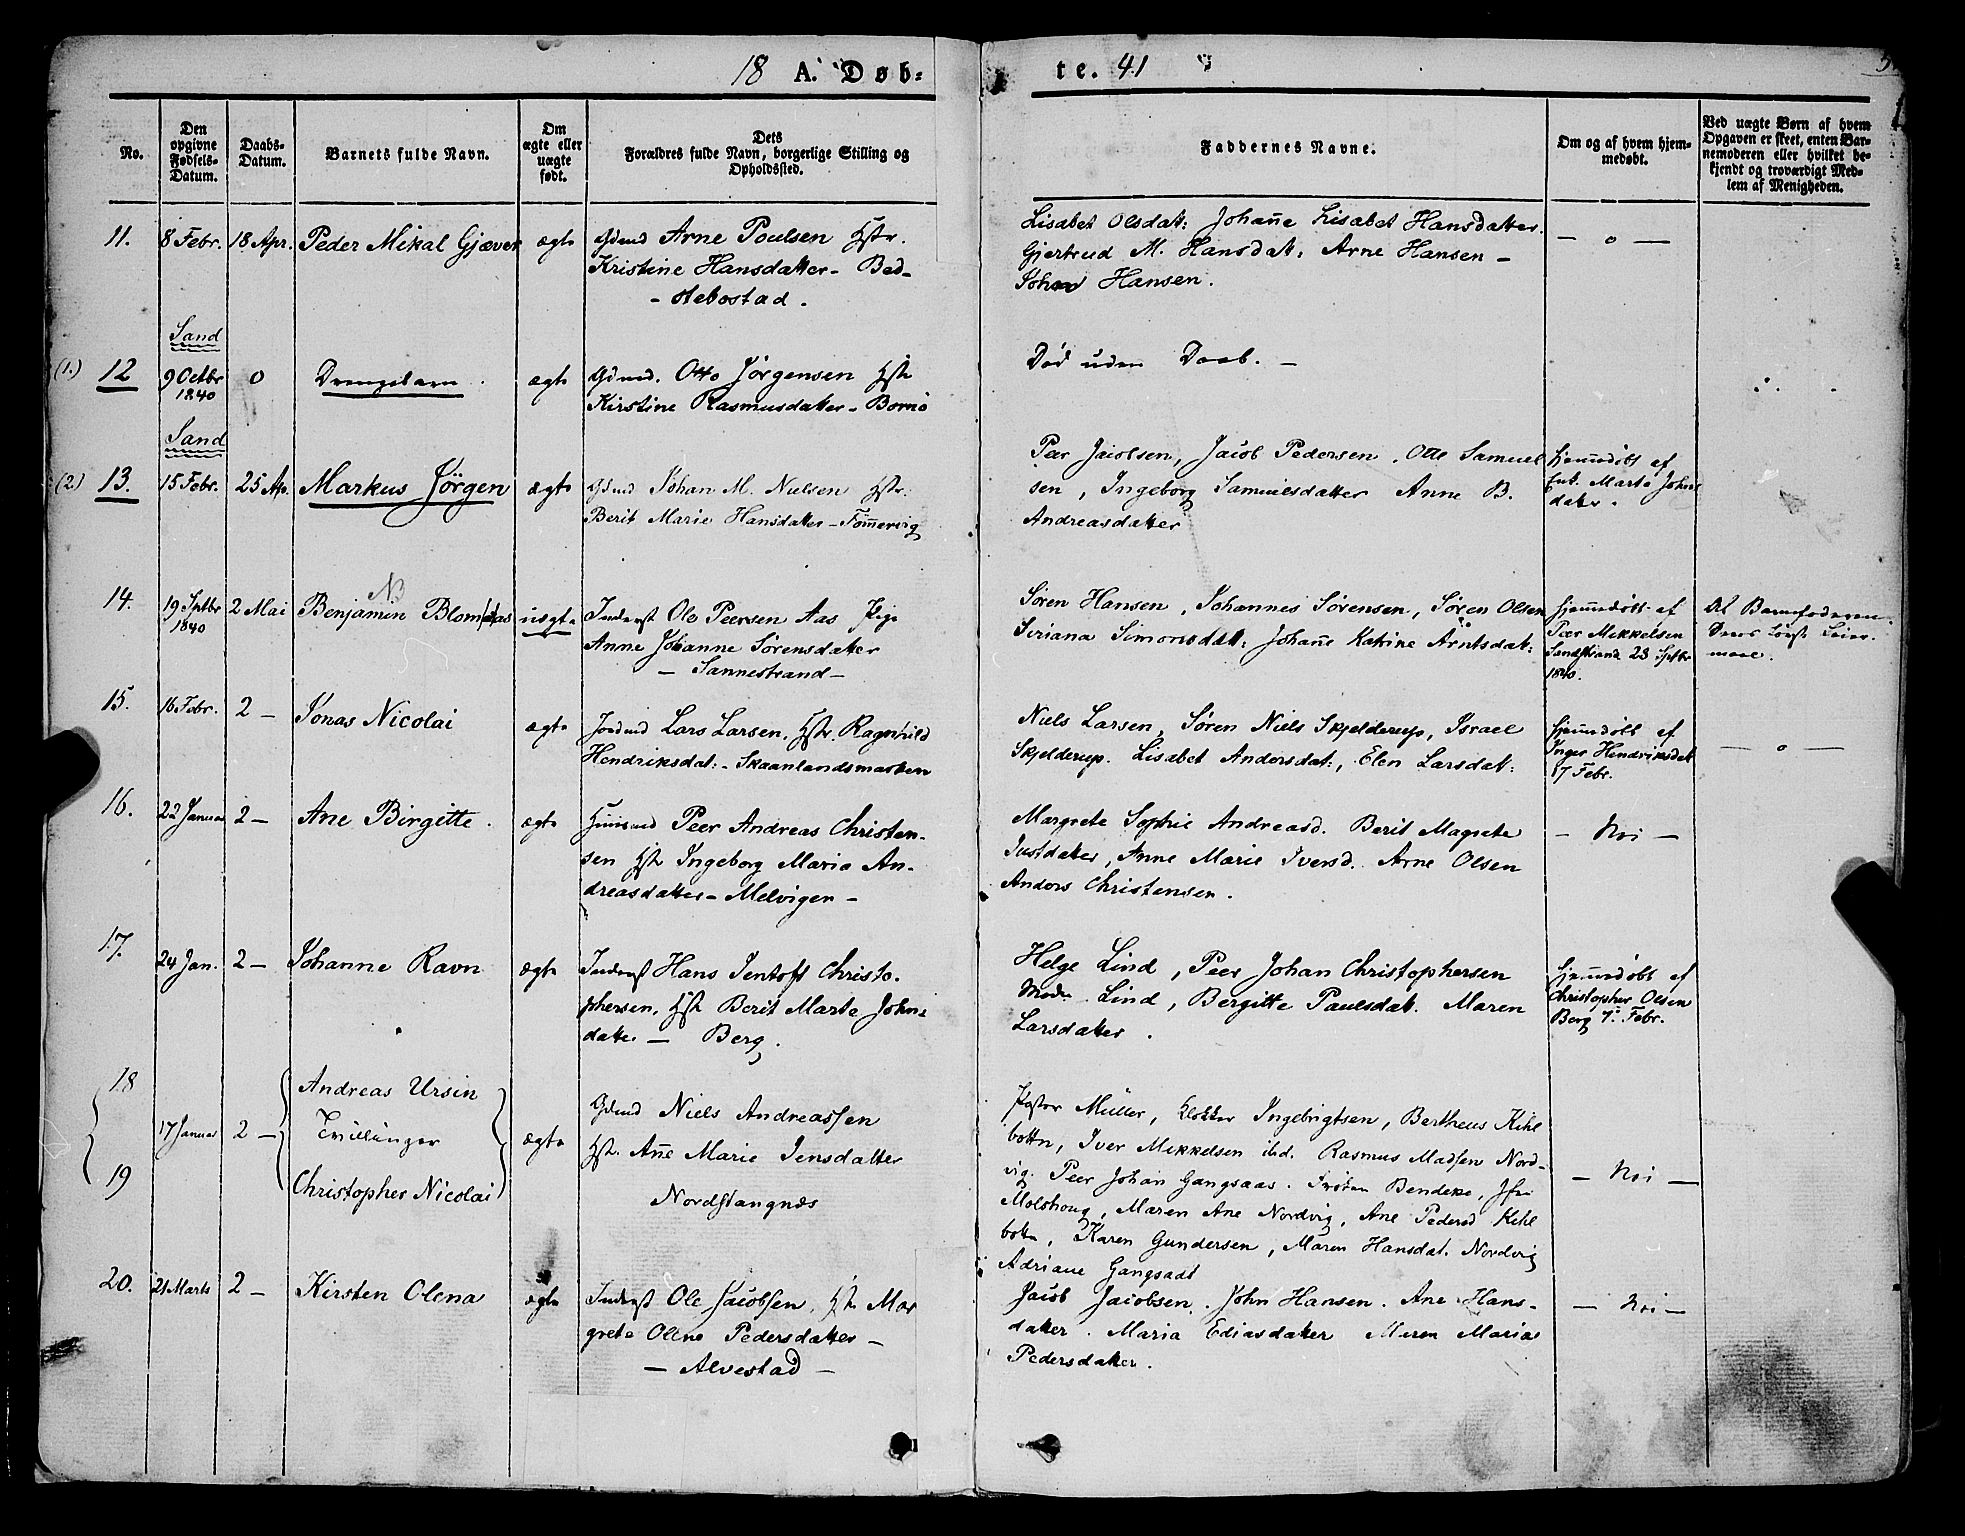 18 A. Døb-
te. 41
No.
Den opgivne Fødsels-Datum.
Daabs-Datum.
Barnets fulde Navn.
Om ægte eller uægte født.
Dets Forældres fulde Navn, borgerlige Stilling og Opholdssted.
Faddernes Navne.
Om og af hvem hjem-medøbt.
Ved uægte Børn af hvem Opgaven er skeet, enten Bar-nemoderen eller hvilket be-kjendt og troværdigt Med-lem af Menigheden.
11. 8 Febr. 18 Apr. Peder Mikal Gjæver ægte Gdmd Arne Poulsen Hstr.
Kristine Hansdatter - Bed-
- stebostad.
Lisabet Olsdat: Johañe Lisabet Hansdatter.
Gjertrud M. Hansdat: Arne Hansen -
Johan Hansen.
— o —
Sand
(1.) 12 9 Octbr 1840 0 Drengebarn. ægte Gdmd. Otto Jørgensen Hstr
Kirstine Rasmusdatter - Bornø
Død uden Daab. -
Sand
(2) 13. 15 Febr. 25 Ap. Markus Jörgen ægte Gdmd Johan M. Nielsen Hstr.
Berit Marie Hansdatter - Fom̃ervig
Peer Jacobsen, Jacob Pedersen. Otte Samuel
sen, Ingeborg Samuelsdatter Anne B.
Andreasdatter
hjem̃edøbt af
Enk. Marte Johns
datter.
14. 19 Sptbr 1840 2 Mai Benjamin Blom Aas uægte Inderst Ole Peersen Aas Pige
NB
Anne Johanne Sørensdatter
- Sannestrand -
Søren Hansen, Johannes Sørensen, Søren Olsen
Siriana Simonsdatt: Johañe Katrine Arntsdat:
hjem̃edøbt af
Peer Mikkelsen
Sandstrand 23 Sptbr
1840.
Af Barnefaderen.
Deres første Leier-
maal.
15. 16 Febr. 2 — Jonas Nicolai ægte Jordmd Lars Larsen, Hstr. Ragnhild
Hendriksdat: - Skaanlandsmarken
Niels Larsen, Søren Niels Skjelderup, Israel
Skjelderup. Lisabet Andersdat:, Elen Larsdat:
hjem̃edøbt af
Inger Hendriksdat
17 Febr.
— o —
16. 22 Januar 2 — Ane Birgitte. ægte Huusmd Peer Andreas Christen-
sen Hstr Ingeborg Maria An-
dreasdatter - Melvigen -
Margrete Sophie Andreasd. Berit Magrete
Justdatter, Anne Marie Iversd. Arne Olsen
Anders Christensen.
— Nei —
17. 24 Jan. 2 — Johanne Ravn ægte Inderst Hans Jentoft Christo-
phersen, Hstr Berit Marte Johns
datter — Berg.
Helge Lind, Peer Johan Christophersen
Lind, Bergitte Paulsdat. Maren
Larsdatter.
hjem̃edøbt af
Christopher Olsen
Berg 7. Febr.
18
Andreas Ursin
17 Januar 2 — Tvillinger ægte
19
Christopher Nicolai
Gdmd Niels Andreassen
Hstr. Añe Marie Jensdatter
Nordstangnæs
Pastor Müller, Klokker Ingebrigtsen, Bertheus Kihl
bottn, Iver Mikkelsen ibd. Rasmus Madsen Nord-
vig. Peer Johan Gangsaas. Frøken Bendeke, Jfr.
Molshoug, Maren Ane Nordvig, Ane Pedersd Kihl
bottn, Karen Gundersen, Maren Hansdat. Nordvig
Adriane Gangsaas
— Nei —
20. 21 Marts 2 — Kirsten Olena ægte Inderst Ole Jacobsen, Hstr Mar
grete Oline Pedersdatter -
- Alvestad -
Jacob Jacobsen. John Hansen. Ane Hans-
datter. Maria Ediasdatter Maren Maria
Pedersdatter.
— Nei —